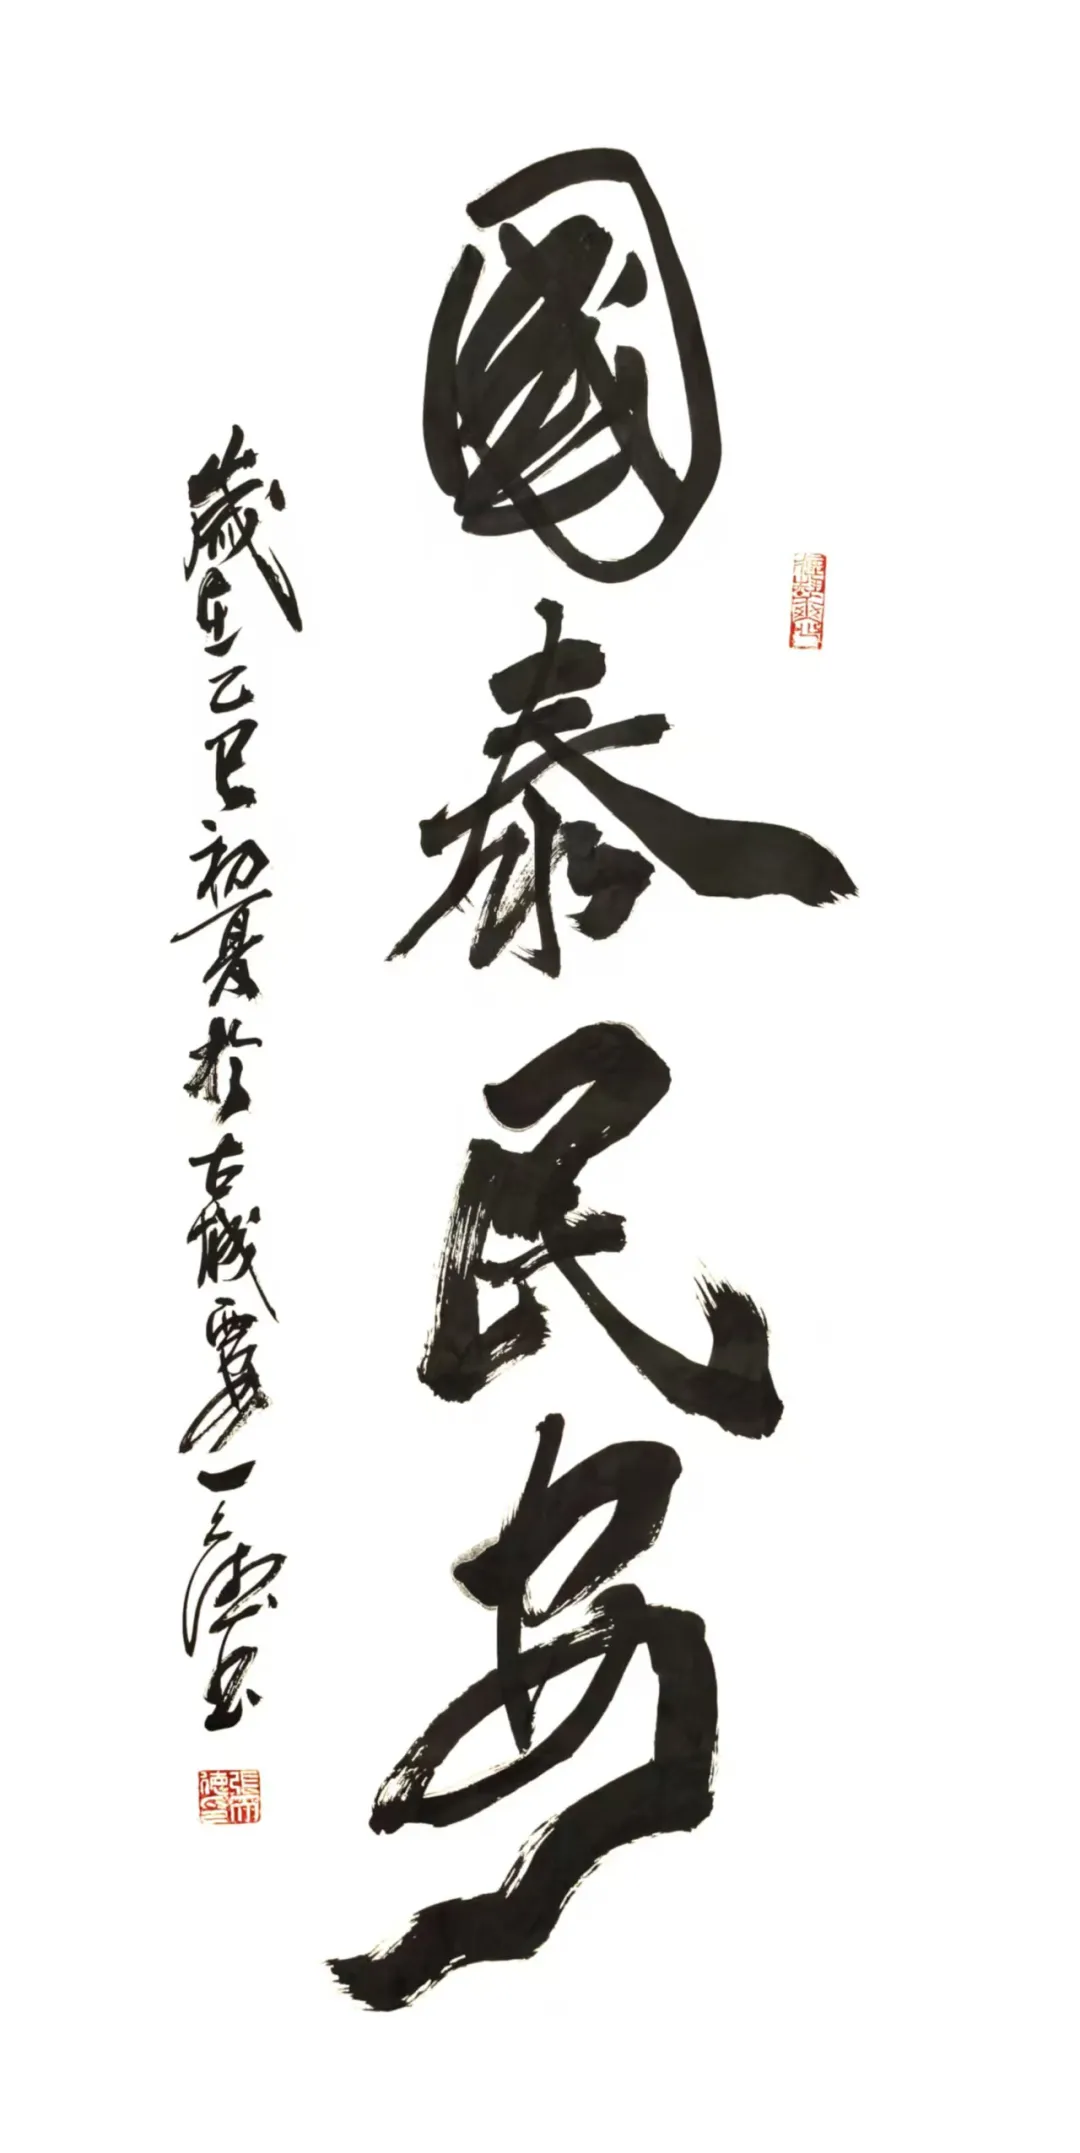 國泰民安
歲在乙巳初夏於古城 一 德書
張 德印